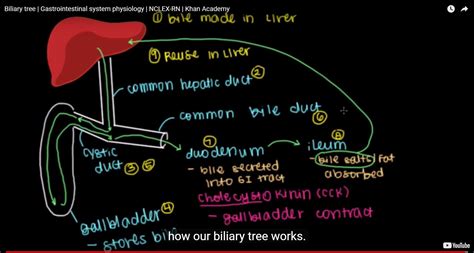 Biliary tree | Gastrointestinal system physiology | NCLEX-RN | Khan Academy
① bile made in liver
⑨ Reuse in Liver
common hepatic duct ②
common bile duct ⑥
cystic duct ③ ⑤
⑦
duodenum
- bile secreted
into GI tract
⑧
ileum
- bile salts/Fat
absorbed
cholecystokinin (CCK)
- gallbladder contract
gallbladder ④
- stores bile
how our biliary tree works.
YouTube